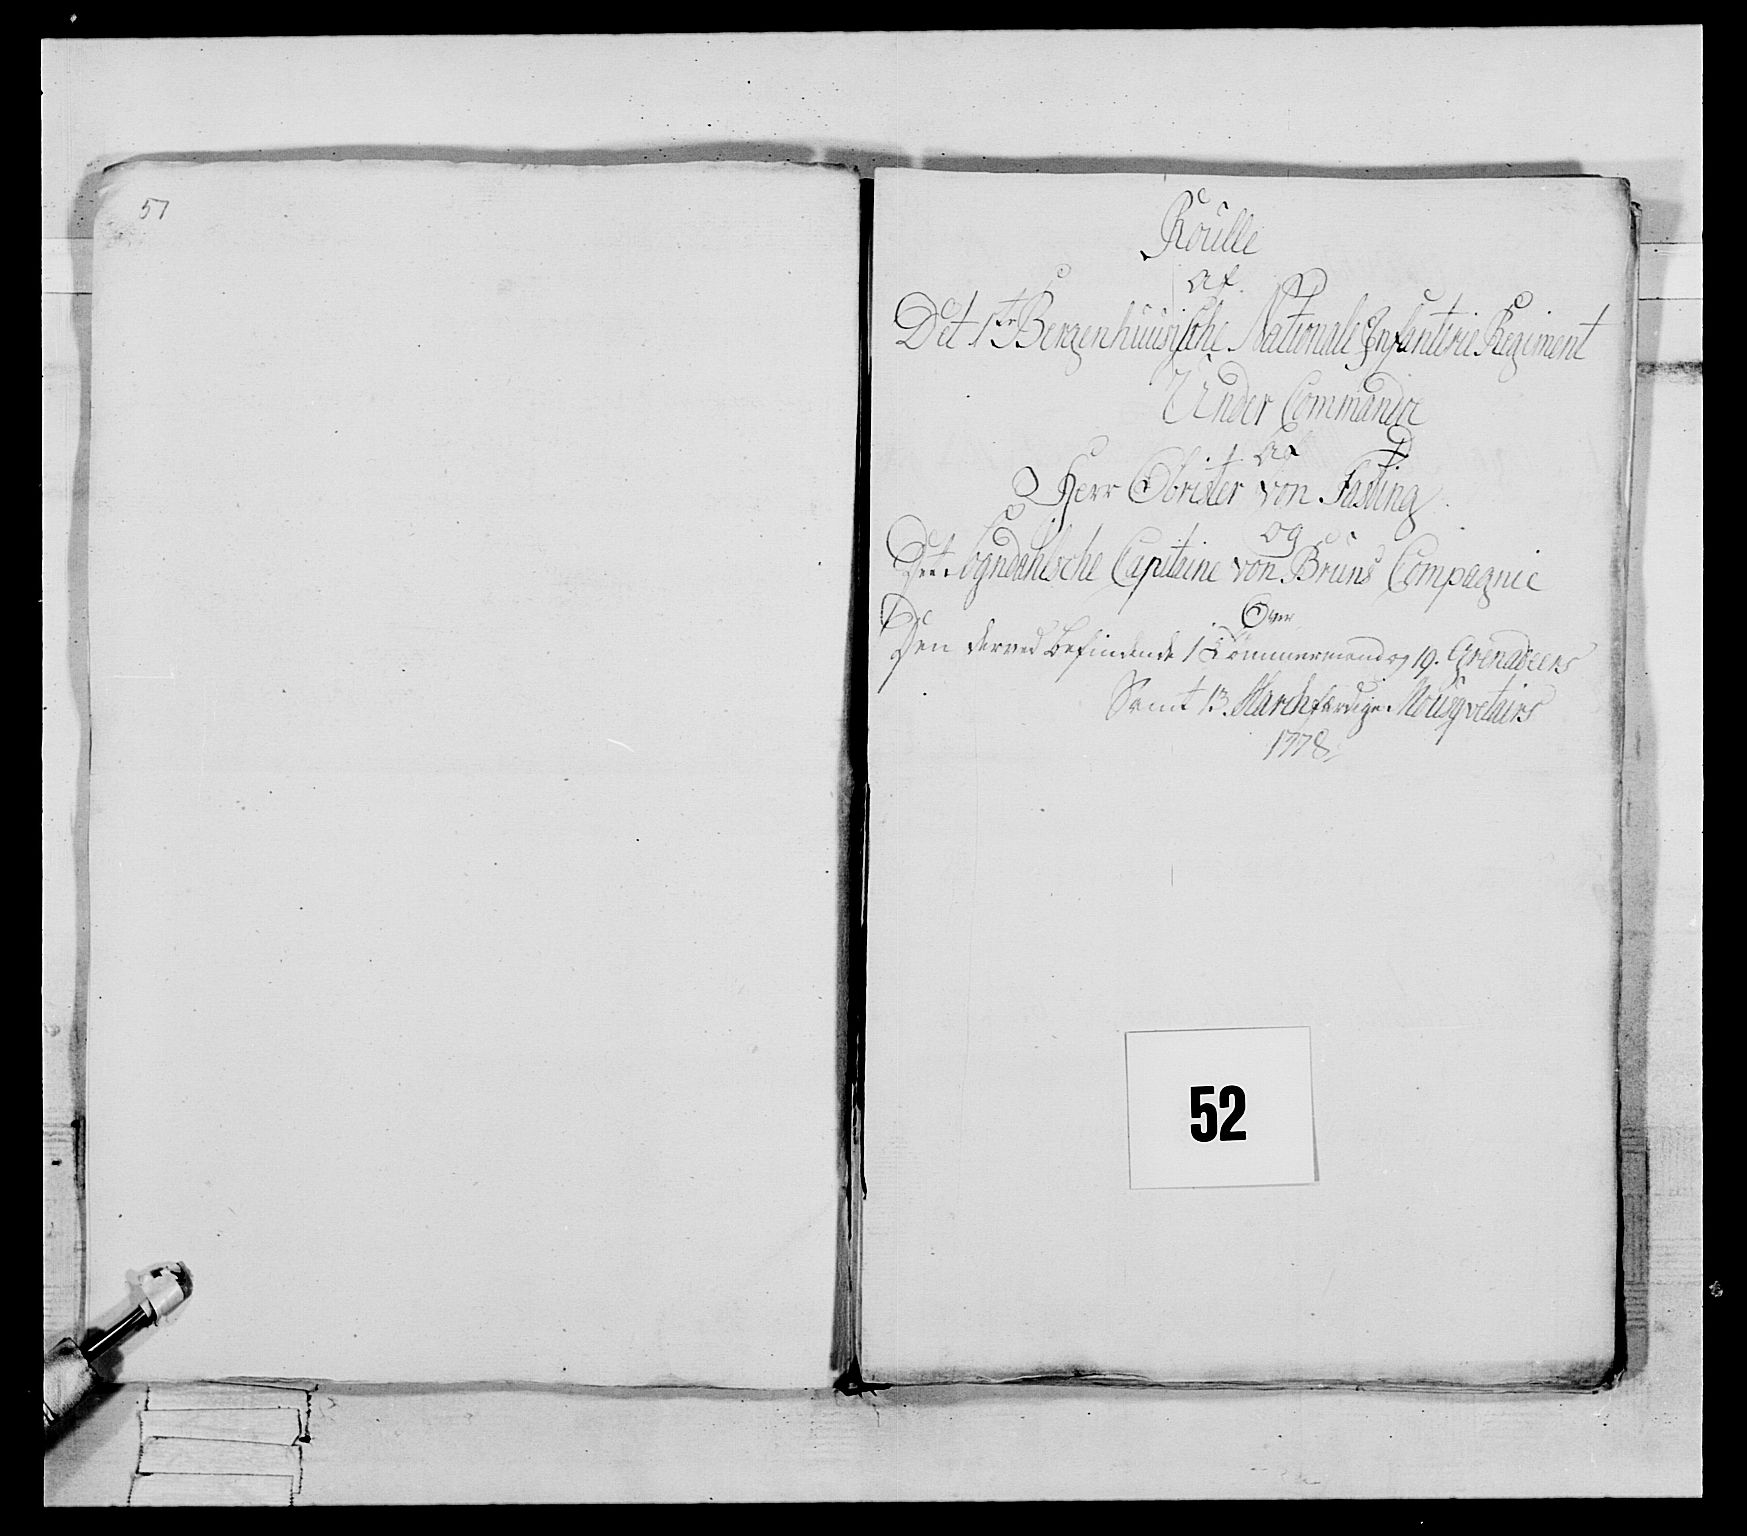 51
Roulle
af
Det 1te Bergenhuusische Nationale Infanterie Regiment
Under Commando
af
Herr Obrister von Fasting
og
Det Sogndahlsche Capitaine von Bruns Compagnie
Over
Den derved befindende 1 Tömmermand og 19. Grenadeers
Samt 13 Marchfærdige Mousqvetairs
1778
52